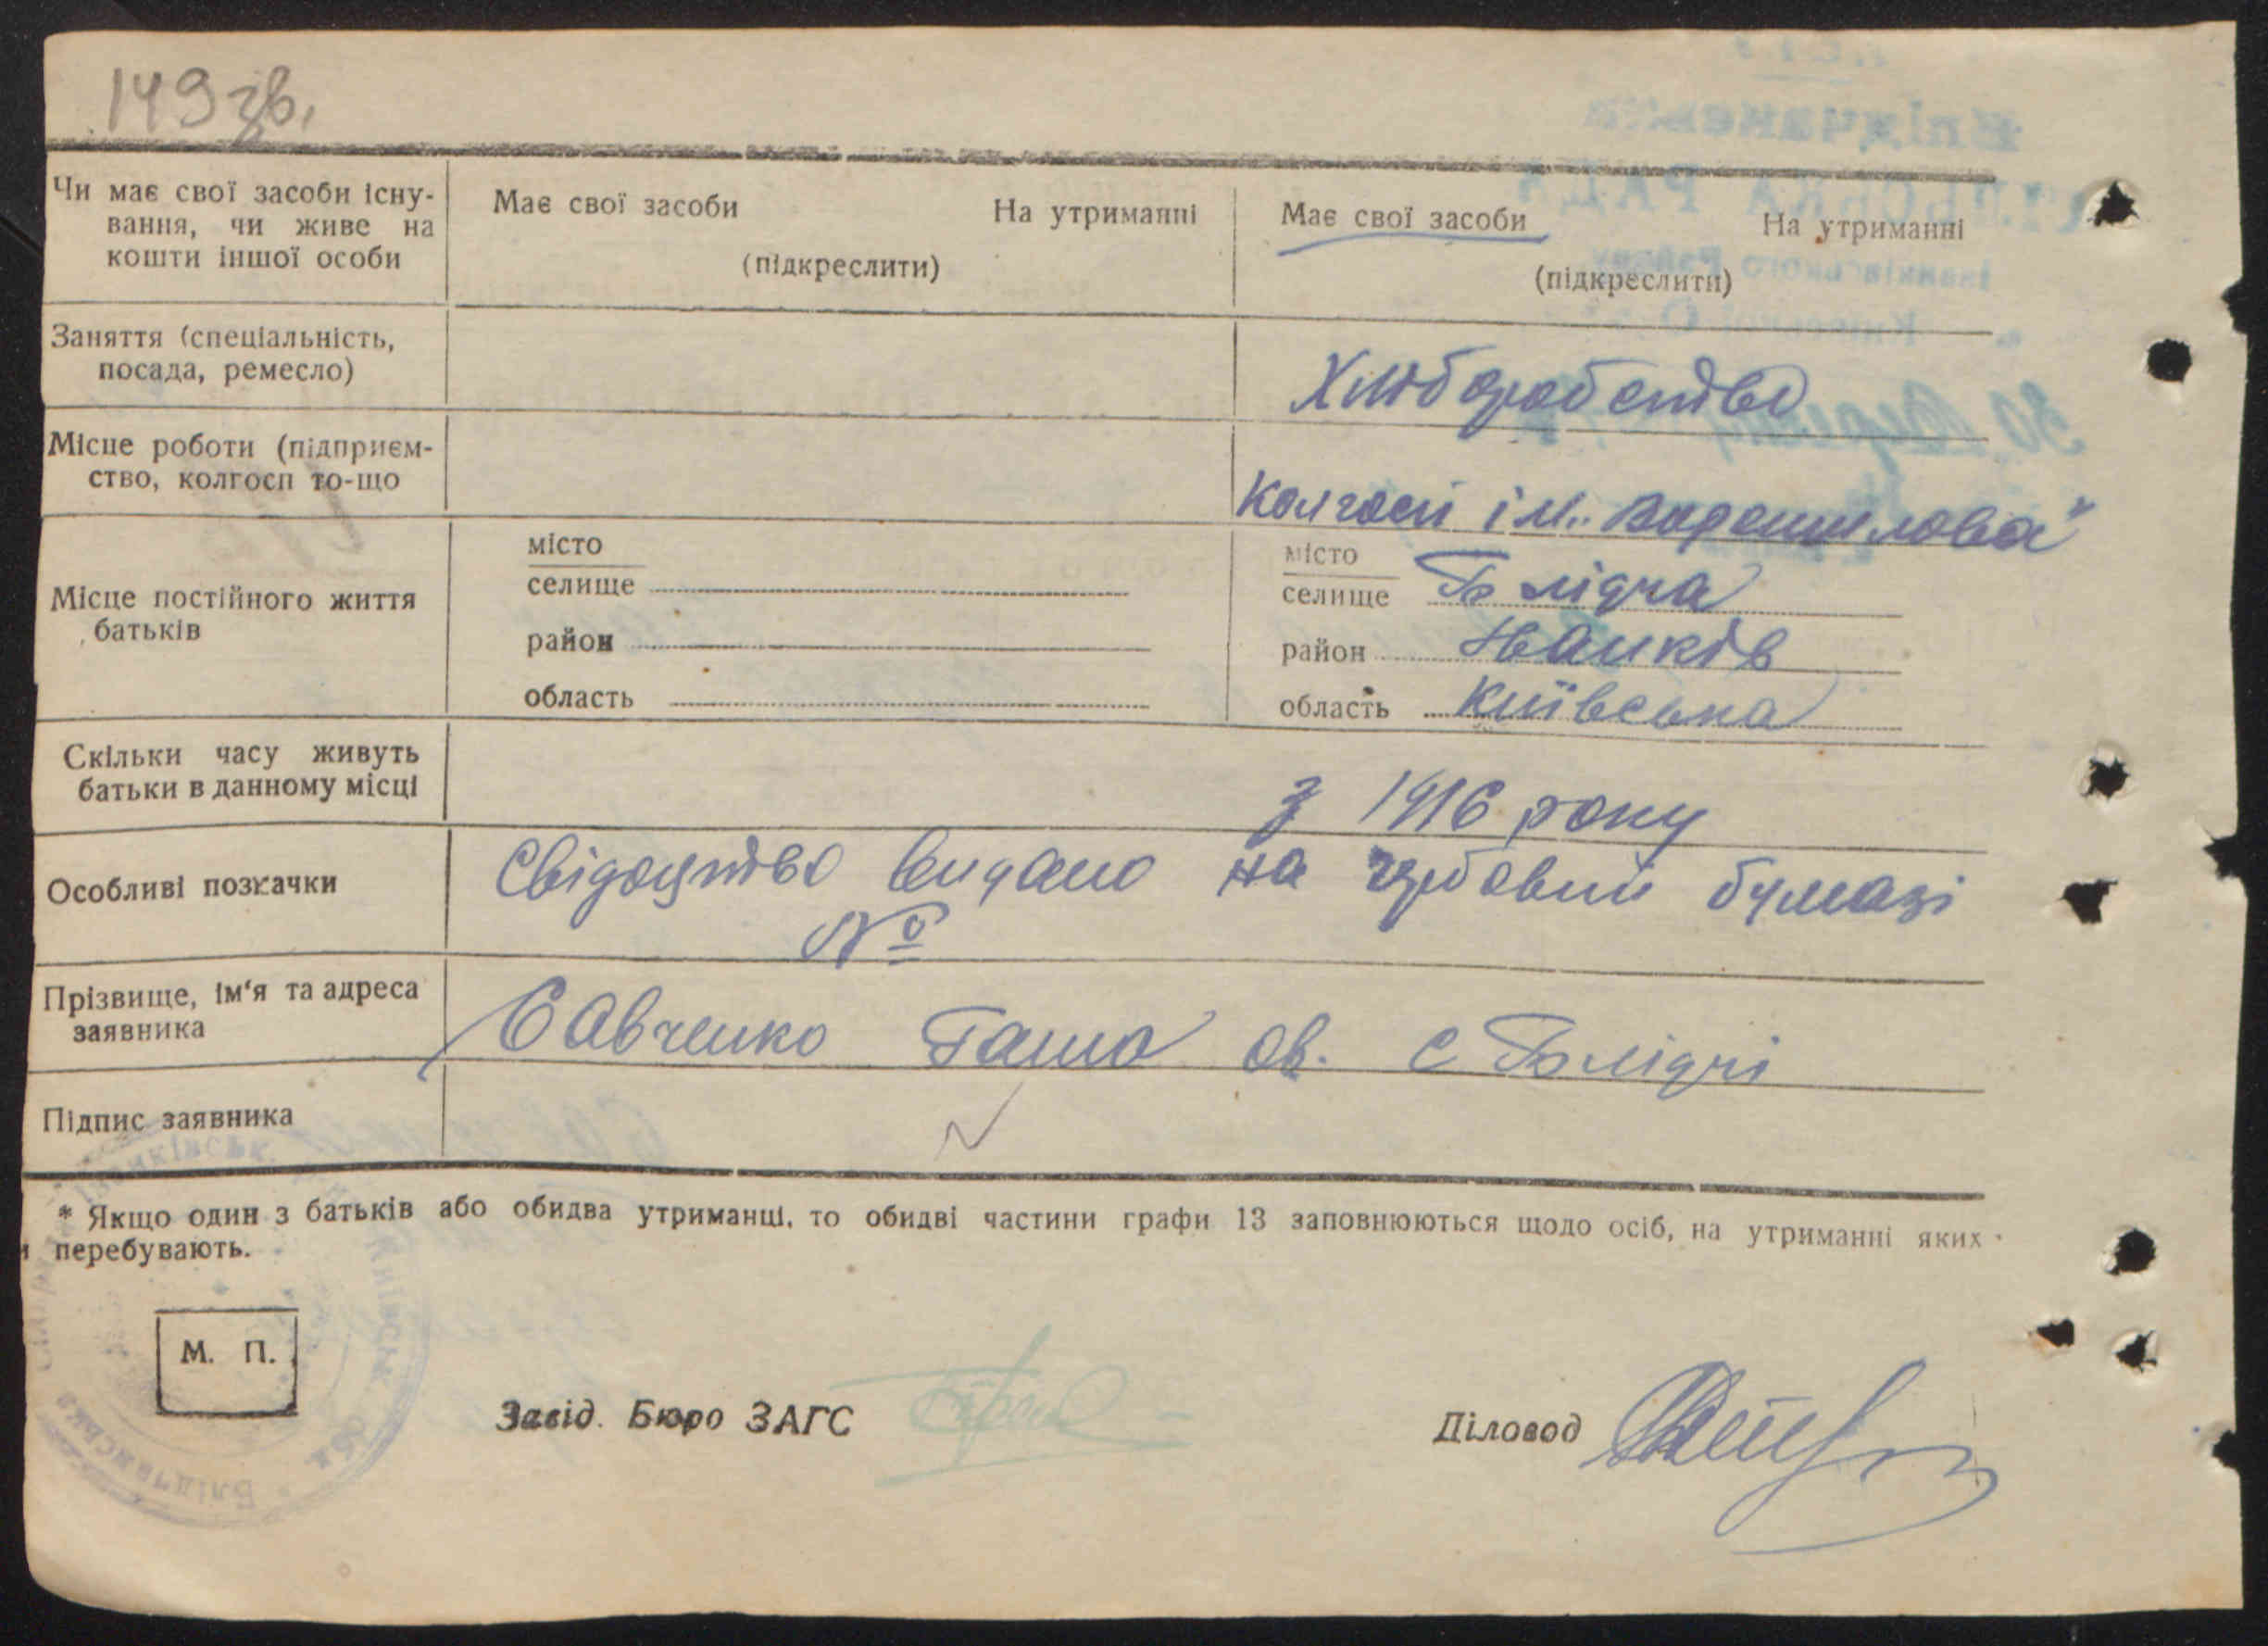 149 зв.
Чи має свої засоби існу-
вання, чи живе на
кошти іншої особи
Має свої засоби На утриманні
(підкреслити)
Має свої засоби На утриманні
(підкреслити)
Заняття (спеціальність,
посада, ремесло)
Хліборобство
Місце роботи (підприєм-
ство, колгосп то-що
Колгосп ім. „Ворошилова"
Місце постійного життя
батьків
місто
селище
район
область
місто
селище Блідча
район Іванків
область Київська
Скільки часу живуть
батьки в данному місці
з 1916 року
Особливі позначки
Свідоцтво видано на гербовий бумазі
№
Прізвище, ім‘я та адреса
заявника
Савченко Ганна Ов. с Блідчі
Підпис заявника
* Якщо один з батьків або обидва утриманці, то обидві частини графи 13 заповнюються щодо осіб, на утриманні яких
и перебувають.
М. П.
Завід. Бюро ЗАГС
Діловод